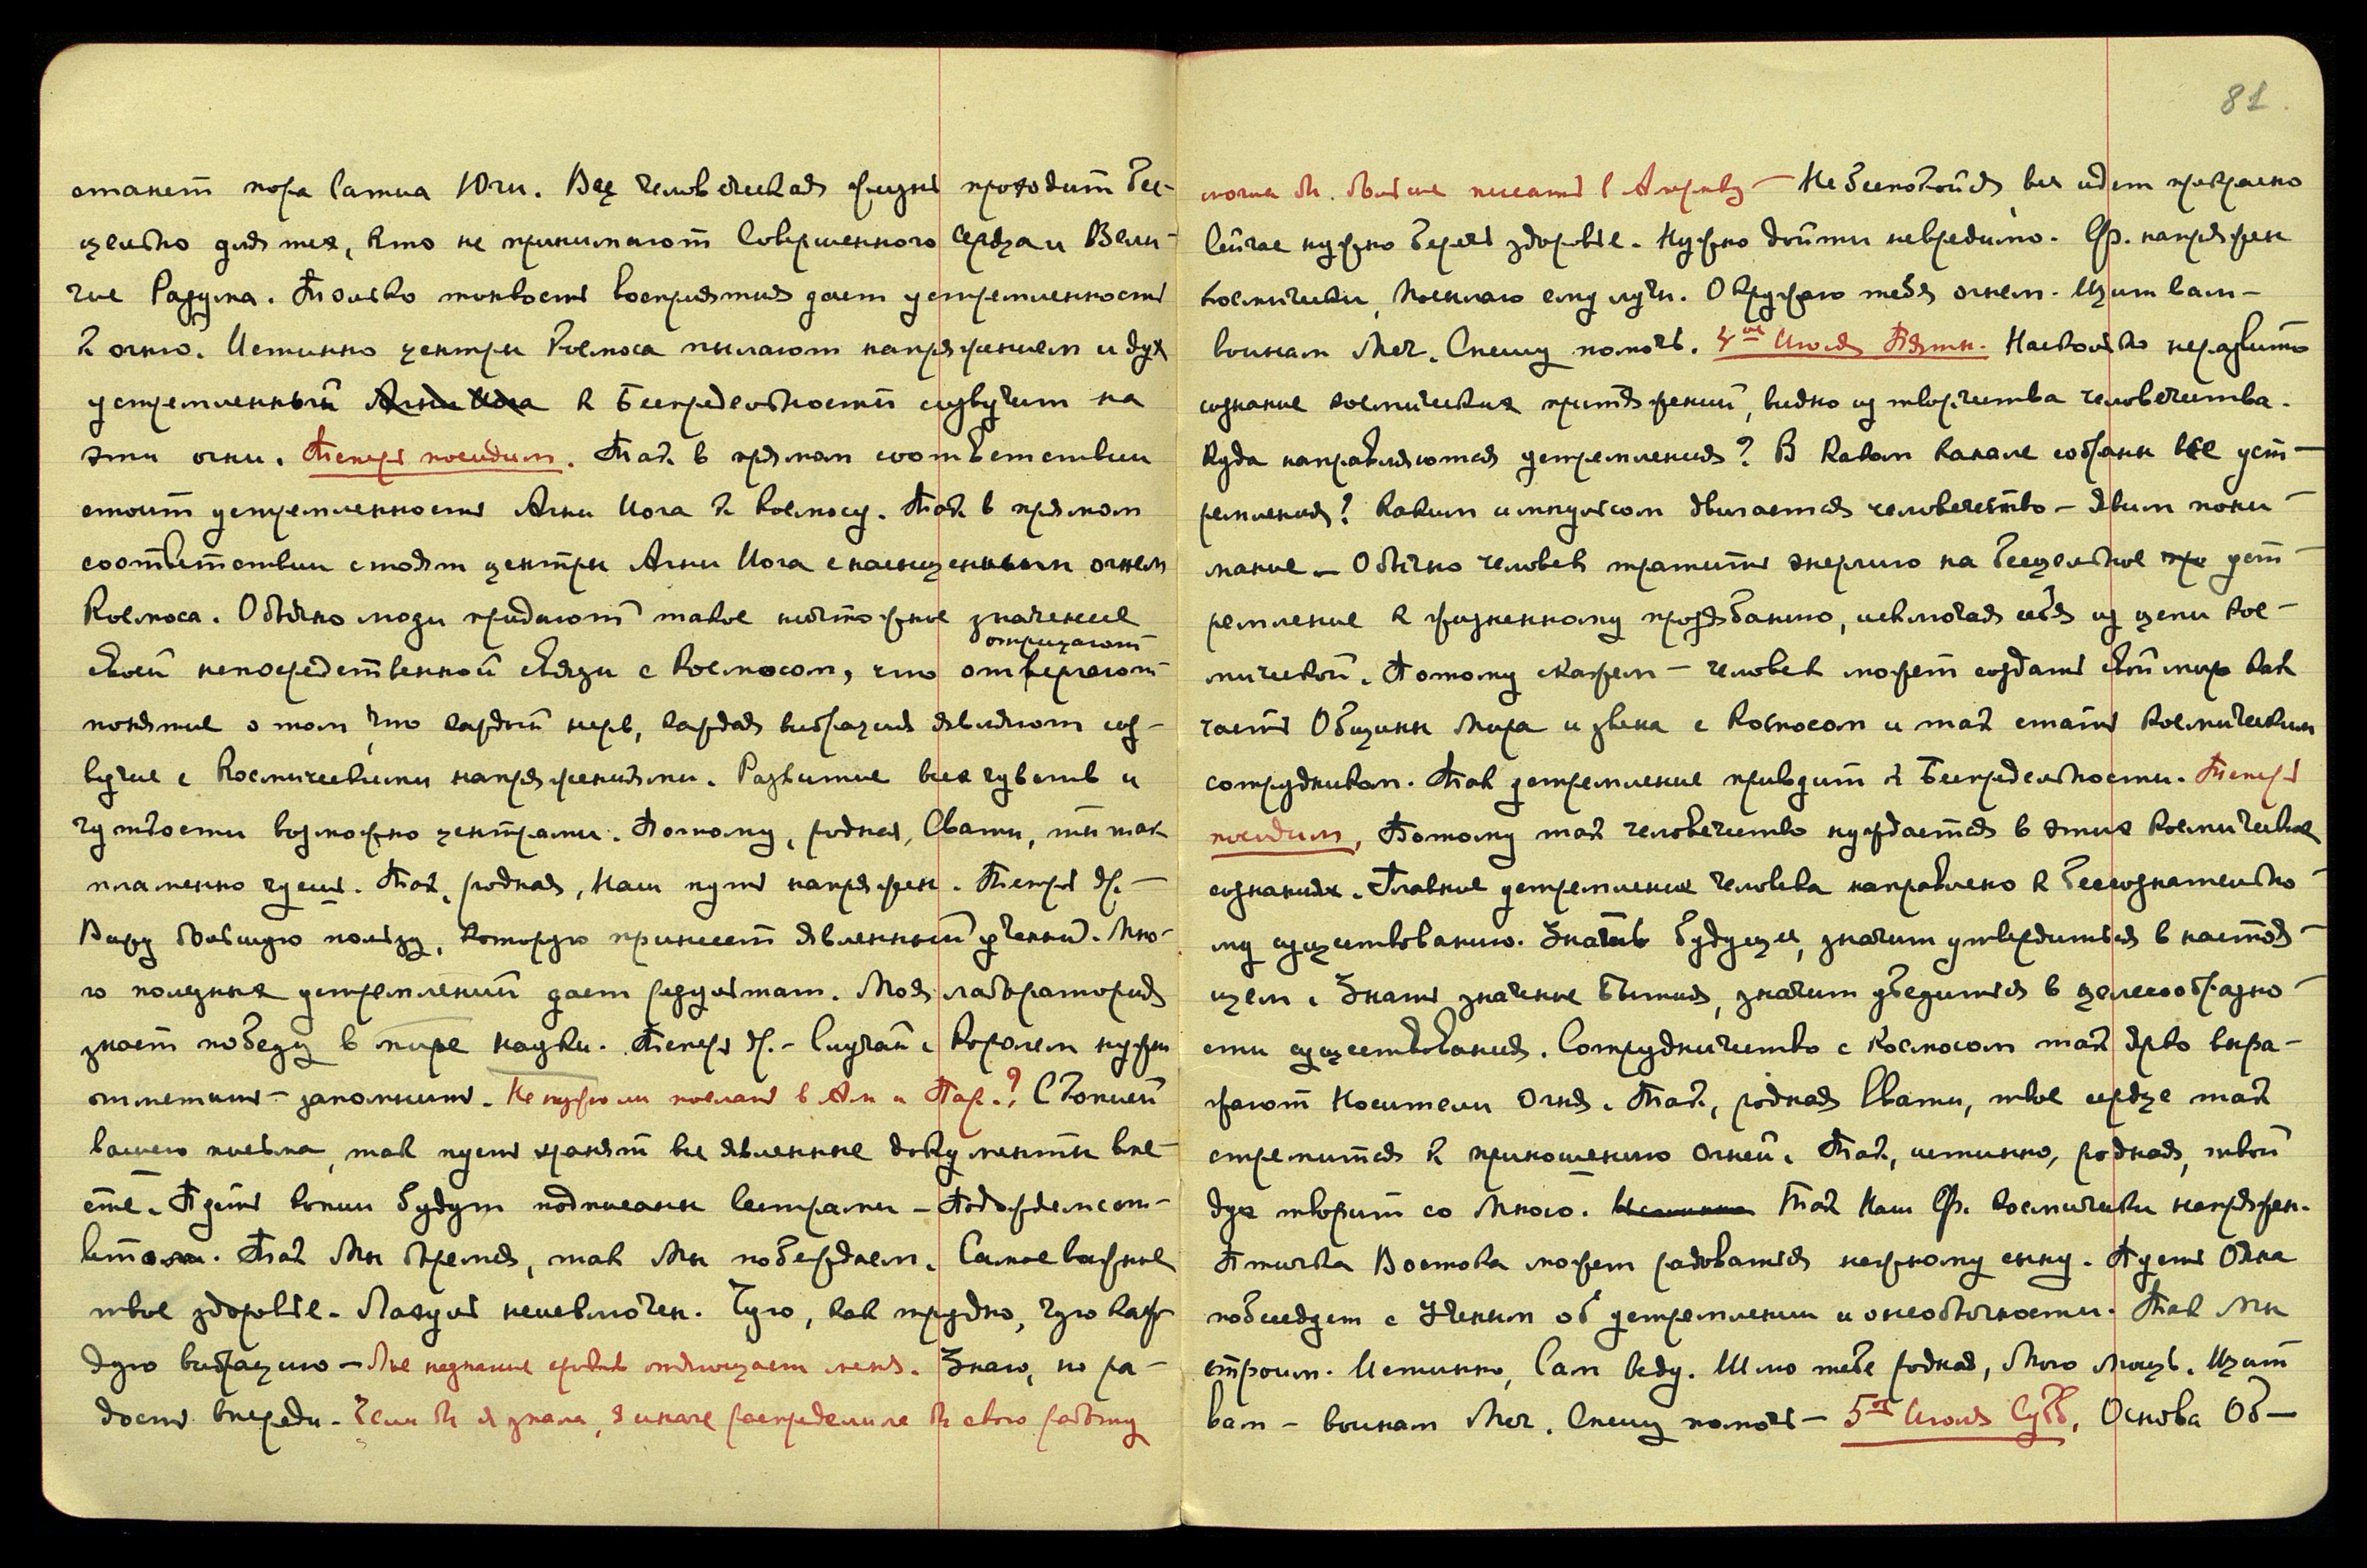 станет пора Сатиа Юги. Вся человеческая жизнь проходит бес-
цельно для тех, кто не принимают Совершенного Сердца и Вели-
чие Разума. Только тонкость восприятия дает устремленность
к огню. Истинно центры Космоса пылают напряжением и дух
устремленный Агни Йога к Беспредельности созвучит на
эти огни. Теперь посидим. Так в прямом соответствии
стоит устремленность Агни Йога к Космосу. Так в прямом
соответствии стоят центры Агни Йога с насыщенным огнем
Космоса. Обычно люди придают такое ничтожное значение
отрицают
своей непосредственной связи с Космосом, что отвергают
понятие о том, что каждый нерв, каждая вибрация являют соз-
вучие с Космическими напряжениями. Развитие всех чувств и
чуткости возможно центрами. Потому, родная, Свати, ты так
пламенно чуешь. Так, родная, Наш путь напряжен. Теперь др. —
Вижу большую пользу, которую принесет явленный ученый. Мно-
го полезных устремлений дает результат. Моя лаборатория
знает победу в мире науки. Теперь др. – Случай с Королем нужно
отметить – запомнить. Не нужно ли послать в Ам и Пар.? С копией
вашего письма, так пусть хранят все явленные документы вме-
сте. Пусть копии будут подписаны Сестрами – Подождем от-
вета. Так Мы бремя, так Мы побеждаем. Самое важное
твое здоровье – Лазуль не исключен. Чую, как трудно, чую каж-
дую вибрацию – Мне незнание сроков отягощает меня. Знаю, но ра-
дость впереди – Если бы я знала, я иначе распределила бы свою работу
81.
могла бы больше писать в Америку – Не беспокойся, все идет прекрасно
Сейчас нужно беречь здоровье. Нужно дойти невредимо. Ф. напряжен
космически, Посылаю ему лучи. Окружаю тебя огнем. Щит вам –
воинам Меч. Спешу помочь. 4ое Июля Пятн. Насколько неразвито
сознание космических притяжений, видно из творчества человечества.
Куда направляются устремления? В каком канале собраны все уст-
ремления? Каким импульсом двигается человечество – явим пони-
мание – Обычно человек тратить энергию на бесцельное устремл
ремление к жизненному прозябанию, исключая себя из цепи кос-
мической. Потому скажем – человек может создать свой мир как
часть Общины Мира и звена с Космосом и так стать космическим
сотрудником. Так устремление приводит к Беспредельности. Теперь
посидим, Потому так человечество нуждается в этих космических
сознаниях. Главное устремление человека направлено к бессознательно-
му существованию. Знать будущее, значит утвердиться в настоя-
щем. Знать значение Бытия, значит убедиться в целесообразно-
сти существования. Сотрудничество с Космосом так ярко выра-
жают Носители Огня. Так, родная Свати, твое сердце так
стремится к приношению Огней. Так, истинно, родная, твой
дух творит со Мною. Истинно Так Наш Ф. космически напряжен.
Птичка Востока может радоваться нежному сну. Пусть Одна
побеседует с Ученым об устремлении и о необычности. Так Мы
строим. Истинно, Сам веду. Шлю тебе родная, Мою Мощь. Щит
вам – воинам Меч. Спешу помочь – 5ое Июля Субб. Основа Об-